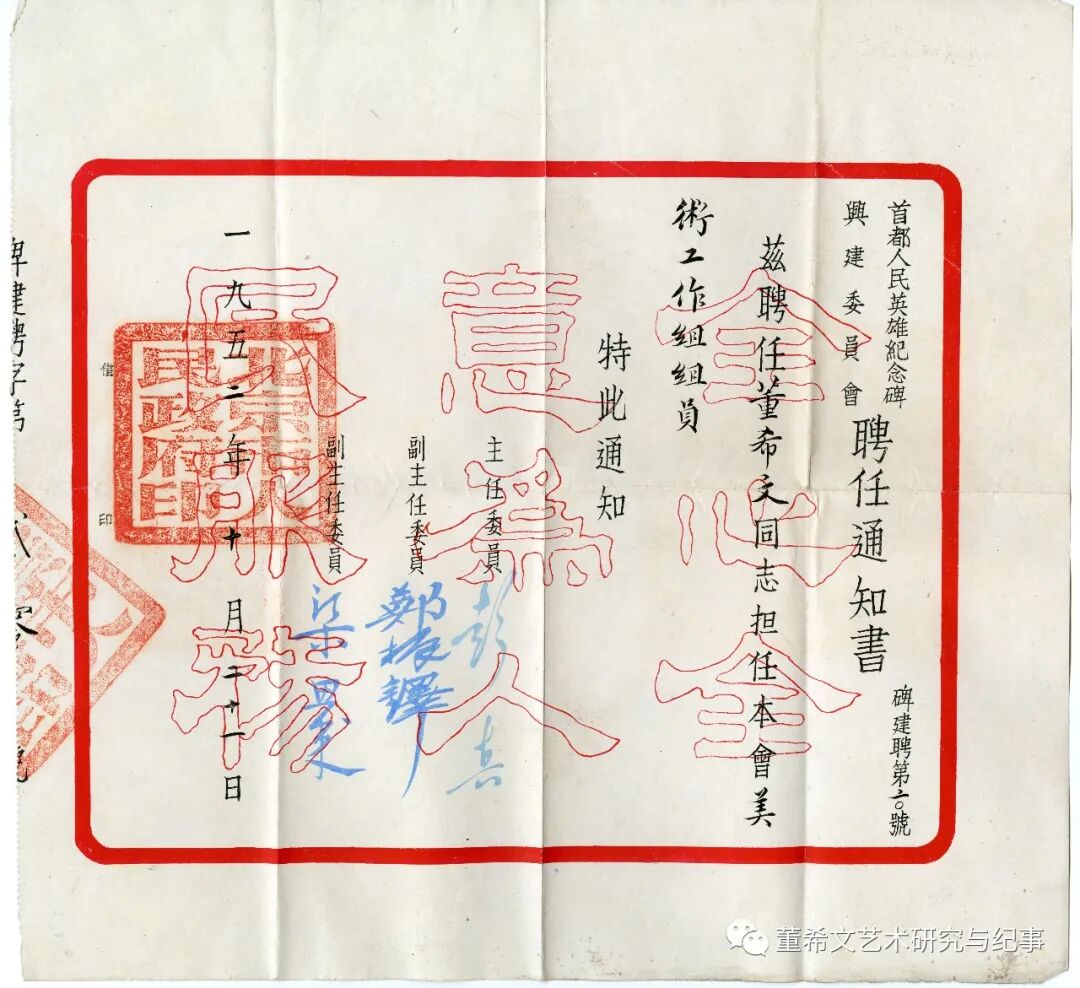 首都人民英雄紀念碑
興建委員會
聘任通知書
碑建聘第二〇號
茲聘任董希文同志担任本會美
術工作組組員
特此通知
主任委員 彭真
副主任委員 鄭振鐸
副主任委員 梁思成
一九五二年十月二十一日
全心全
意為人
民服務
北京市人
民政府印
借
印
碑建聘字第 弍零號
董希文艺术研究与纪事